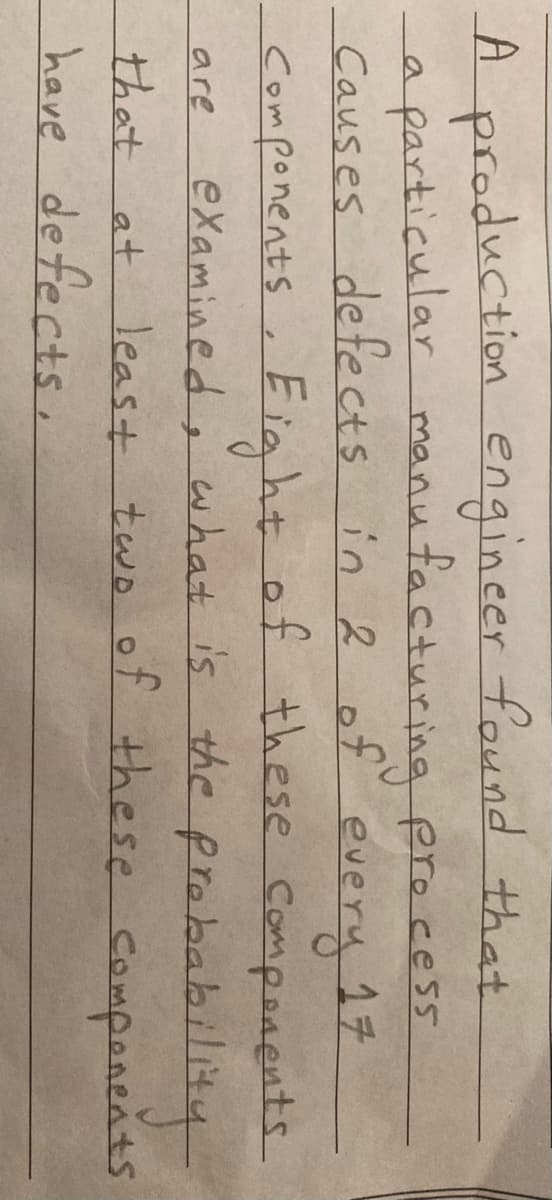 A production engineer found that
a particular manufacturing process
causes defects in 2 of every 17
components. Eight of these components
are examined, what is the probability
that at least two of these components
have defects.